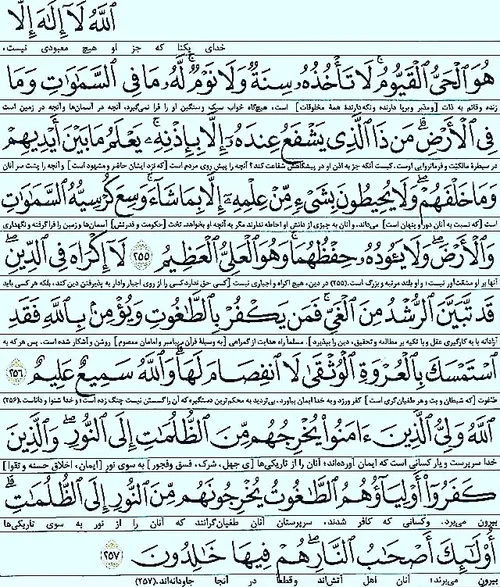 ٱللَّهُ لَآ إِلَٰهَ إِلَّا
خدای یکتا که جز او هیچ معبودی نیست،
هُوَ ٱلْحَىُّ ٱلْقَيُّومُ ۚ لَا تَأْخُذُهُۥ سِنَةٌ وَلَا نَوْمٌ ۚ لَّهُۥ مَا فِى ٱلسَّمَٰوَٰتِ وَمَا
زنده و قائم به ذات [و مدبّر و برپا دارنده و نگه‌دارندهٔ همهٔ مخلوقات] است، هیچ‌گاه خواب سبک و سنگین او را فرا نمی‌گیرد، آنچه در آسمان‌ها و آنچه در زمین است
فِى ٱلْأَرْضِ ۗ مَن ذَا ٱلَّذِى يَشْفَعُ عِندَهُۥٓ إِلَّا بِإِذْنِهِۦ ۚ يَعْلَمُ مَا بَيْنَ أَيْدِيهِمْ
در سیطرهٔ مالکیّت و فرمانروایی اوست. کیست آنکه جز به اذن او در پیشگاهش شفاعت کند؟ آنچه را پیش روی مردم است [که نزد ایشان حاضر و مشهود است] و آنچه را پشت سر آنان
وَمَا خَلْفَهُمْ ۖ وَلَا يُحِيطُونَ بِشَىْءٍ مِّنْ عِلْمِهِۦٓ إِلَّا بِمَا شَآءَ ۚ وَسِعَ كُرْسِيُّهُ ٱلسَّمَٰوَٰتِ
است [که نسبت به آنان دور و پنهان است] می‌داند، و آنان به چیزی از دانش او احاطه ندارند مگر به آنچه او بخواهد. تخت [حکومت و قدرتش] آسمان‌ها و زمین را فرا گرفته و نگهداری
وَٱلْأَرْضَ ۖ وَلَا يَـُٔودُهُۥ حِفْظُهُمَا ۚ وَهُوَ ٱلْعَلِىُّ ٱلْعَظِيمُ ﴿٢٥٥﴾ لَآ إِكْرَاهَ فِى ٱلدِّينِ ۖ
آنها بر او مشقّت‌آور نیست؛ و او بلند مرتبه و بزرگ است. (۲۵۵) در دین، هیچ اکراه و اجباری نیست [کسی حق ندارد کسی را از روی اجبار وادار به پذیرفتن دین کند، بلکه هر کسی باید
قَد تَّبَيَّنَ ٱلرُّشْدُ مِنَ ٱلْغَىِّ ۚ فَمَن يَكْفُرْ بِٱلطَّٰغُوتِ وَيُؤْمِنۢ بِٱللَّهِ فَقَدِ
آزادانه با به کارگیری عقل و با تکیه بر مطالعه و تحقیق، دین را بپذیرد]. مسلماً راه هدایت از گمراهی [به وسیلهٔ قرآن، پیامبر و امامان معصوم] روشن و آشکار شده است. پس هر که به
ٱسْتَمْسَكَ بِٱلْعُرْوَةِ ٱلْوُثْقَىٰ لَا ٱنفِصَامَ لَهَا ۗ وَٱللَّهُ سَمِيعٌ عَلِيمٌ ﴿٢٥٦﴾
طاغوت [که شیطان و بت و هر طغیان‌گری است] کفر ورزد و به خدا ایمان بیاورد، بی‌تردید به محکم‌ترین دستگیره که آن را گسستن نیست چنگ زده است؛ و خدا شنوا و داناست. (۲۵۶)
ٱللَّهُ وَلِىُّ ٱلَّذِينَ ءَامَنُوا۟ يُخْرِجُهُم مِّنَ ٱلظُّلُمَٰتِ إِلَى ٱلنُّورِ ۖ وَٱلَّذِينَ
خدا سرپرست و یار کسانی است که ایمان آورده‌اند؛ آنان را از تاریکی‌ها [ی جهل، شرک، فسق و فجور] به سوی نور [ایمان، اخلاق حسنه و تقوا]
كَفَرُوٓا۟ أَوْلِيَآؤُهُمُ ٱلطَّٰغُوتُ يُخْرِجُونَهُم مِّنَ ٱلنُّورِ إِلَى ٱلظُّلُمَٰتِ ۗ
بیرون می‌برد. و کسانی که کافر شدند، سرپرستان آنان طغیان‌گرانند که آنان را از نور به سوی تاریکی‌ها
أُو۟لَٰٓئِكَ أَصْحَٰبُ ٱلنَّارِ ۖ هُمْ فِيهَا خَٰلِدُونَ ﴿٢٥٧﴾
بیرون می‌برند؛ آنان اهل آتش‌اند و قطعاً در آنجا جاودانه‌اند. (۲۵۷)